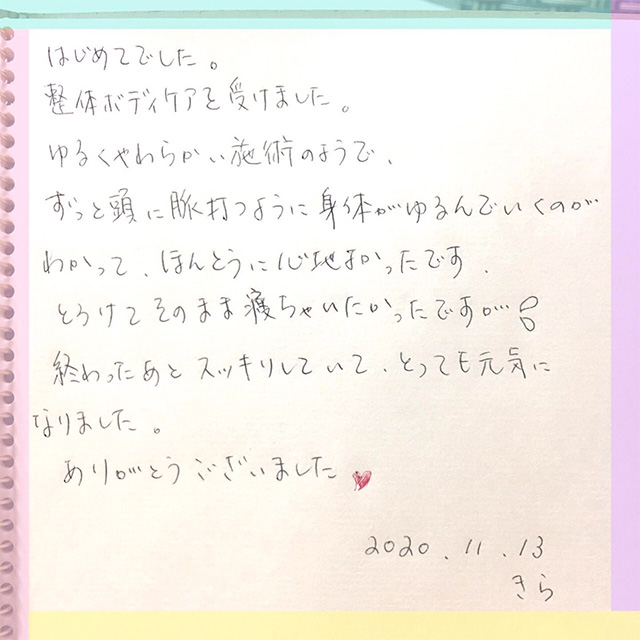 はじめてでした。
整体ボディケアを受けました。
ゆるくやわらかい施術のようで、
ずっと頭に脈打つように身体がゆるんでいくのが
わかって、ほんとうに心地よかったです、
とろけてそのまま寝ちゃいたかったですが
終わったあとスッキリしていて、とっても元気に
なりました。
ありがとうございました
2020.11.13
きら